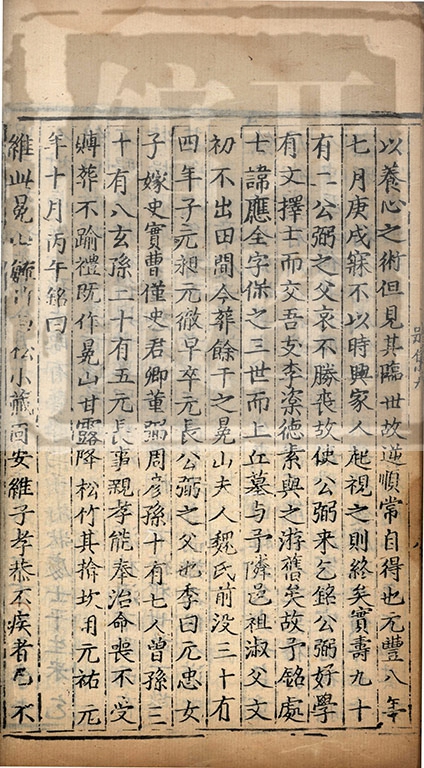 以養心之術但見其臨世故逆順常自得也元豐八年
七月庚戌寐不以時興家人起視之則終矣實壽九十
有二公弼之父哀不勝喪故使公弼来乞銘公弼好學
有文擇士而交吾友李楶德素與之游舊矣故予銘處
士諱應全字保之三世而上丘墓与予隣邑祖淑父文
初不出田間今葬餘干之冕山夫人魏氏前没三十有
四年子元昶元徹早卒元長公弼之父也季曰元忠女
子嫁史實曹僅史君卿董弼周彦孫十有七人曾孫三
十有八玄孫二十有五元長事親孝能奉治命喪不受
賻葬不踰禮既作冕山甘露降松竹其揜坎用元祐元
年十月丙午銘曰
維此冕山 松小 安維子孝恭不疾者 不